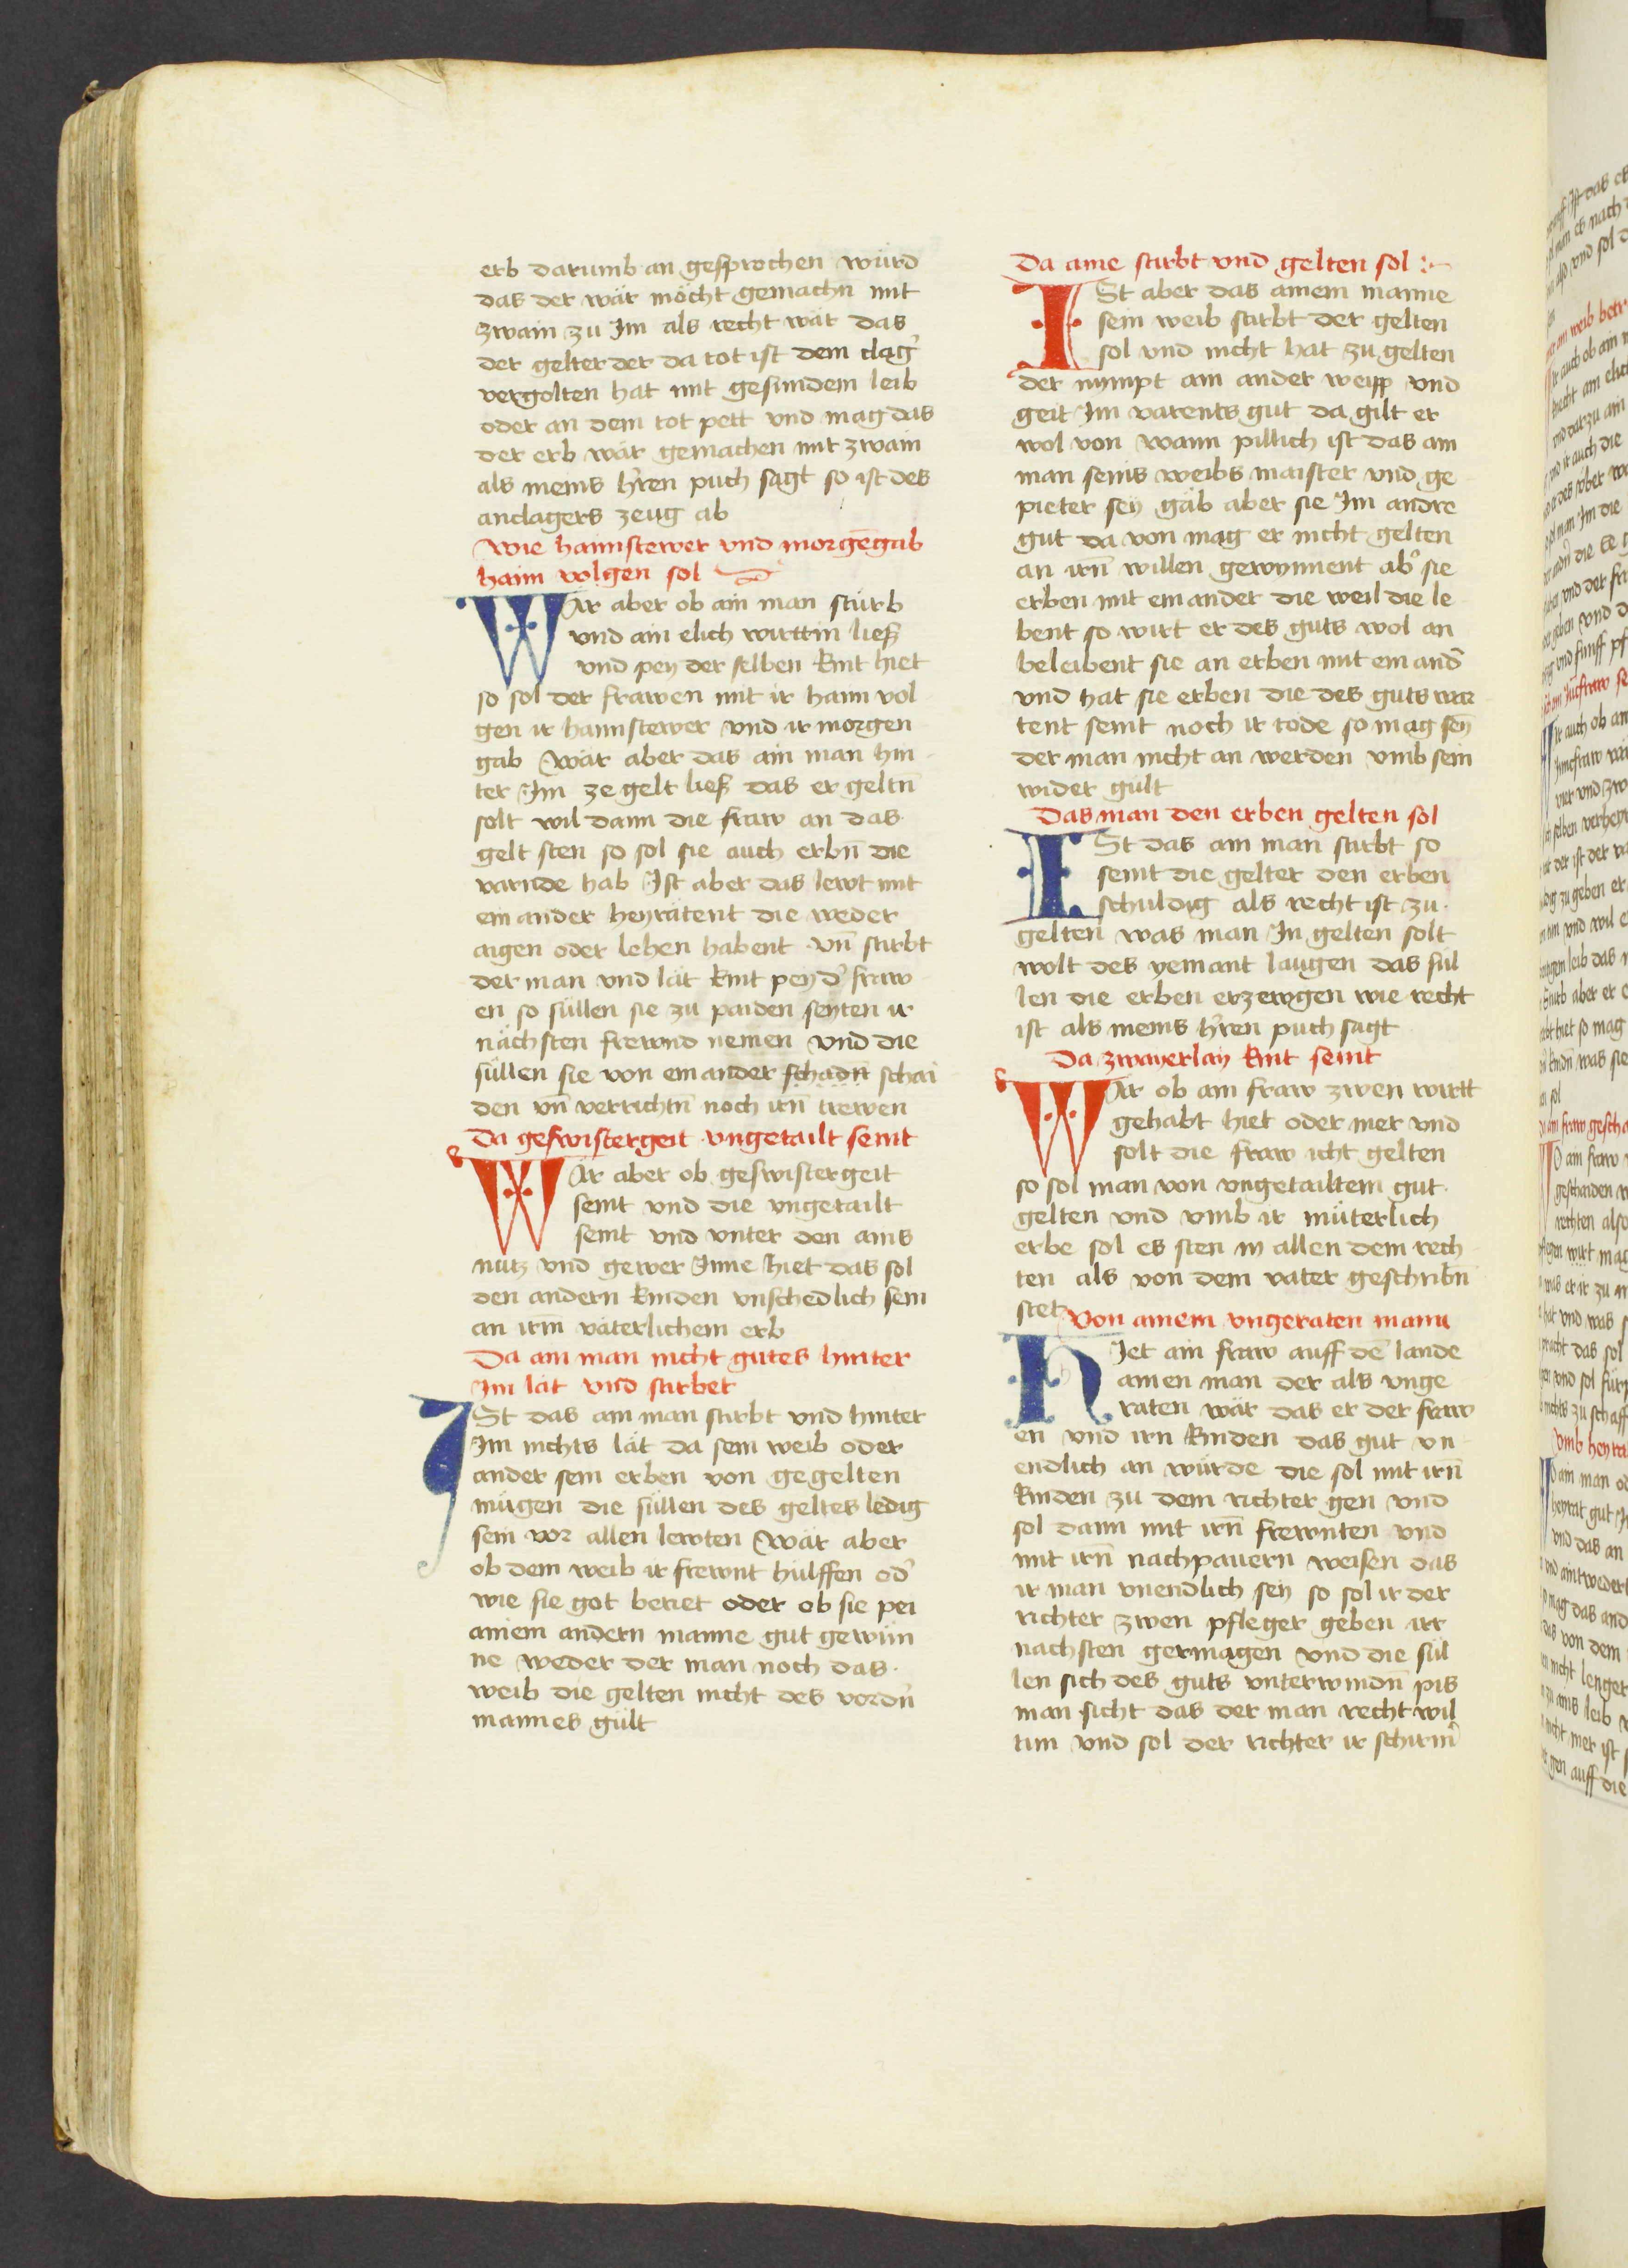 erb darumb an gesprochen würd
das der wär möcht gemachn̄ mit
zwain zu Im als recht wär das
der gelter der da tot ist dem clag̉
vergolten hat mit gesundem leib
oder an dem tot pett vnd mag das
der erb wär gemachen mit zwain
als meins h̉ren puch sagt so ist des
anclagers zeug ab
Wie haimstewer vnd morgēgab
haim volgen sol
WAr aber ob ain man stürb
vnd ain elich wirttin lieſs
vnd pey der selben kint hiet
so sol der frawen mit ir haim vol
gen ir haimstewer vnd ir morgen
gab Wär aber das ain man hin
ter Im ze gelt lieſs das er geltn̄
solt wil dann die fraw an das
gelt sten so sol sie auch erbn̄ die
varnde hab Ist aber das lewt mit
ein ander heyratent die weder
aigen oder lehen habent vn̄ stirbt
der man vnd lät kint pey d̉ fraw
en so süllen sie zu paiden seyten ir
nächsten frewnd nemen vnd die
süllen sie von ein ander schadn̄ schai
den vn̄ verrichtn̄ noch irn̄ trewen
Da geswistergeit vngetailt seint
WAr aber ob geswistergeit
seint vnd die vngetailt
seint vnd vnter den ains
nutz vnd gewer Inne hiet das sol
den andern kinden vnschedlich sein
an irm̄ väterlichem erb
Da ain man nicht gutes hinter
Im lät vnd stirbet
ISt das ain man stirbt vnd hinter
Im nichts lät da sein weib oder
ander sein erben von gegelten
mügen die süllen des geltes ledig
sein vor allen lewten Wär aber
ob dem weib ir frewnt hülffen od̉
wie sie got beriet oder ob sie pei
ainem andern manne gut gewün
ne weder der man noch das
weib die gelten nicht des vordn̉
mannes gült
Da aine stirbt vnd gelten sol
ISt aber das ainem manne
sein weib stirbt der gelten
sol vnd nicht hat zu gelten
der nympt ain ander weipp vnd
geit Im varents gut da gilt er
wol von wann pillich ist das ain
man seins weibs maister vnd ge
pieter sey gäb aber sie Im andre
gut da von mag er nicht gelten
an irn̄ willen gewynnent ab̉ sie
erben mit ein ander die weil die le
bent so wirt er des guts wol an
beleibent sie an erben mit ein and̉
vnd hat sie erben die des guts war
tent seint noch ir tode so mag sein̄
der man nicht an werden vmb sein
wider gült
Das man den erben gelten sol
ISt das ain man stirbt so
seint die gelter den erben
schuldig als recht ist zu
gelten was man In gelten solt
wolt des yemant laugen das sül
len die erben erzewgen wie recht
ist als meins h̉ren puch sagt
Da zwayerlay kint seint
WAr ob ain fraw zwen wirtt
gehabt hiet oder mer vnd
solt die fraw icht gelten
so sol man von vngetailtem gut
gelten vnd vmb ir müterlich
erbe sol es sten in allen dem rech
ten als von dem vater geschribn̄
stet
Von ainem vngeraten mann
HIet ain fraw auff dē lande
ainen man der als vnge
raten wär das er der fraw
en vnd irn kinden das gut vn
endlich an würde die sol mit irn̄
kinden zu dem richter gen vnd
sol dann mit irn̄ frewnten vnd
mit irn̄ nachpauern weisen das
ir man vnendlich sey so sol ir der
richter zwen pfleger geben irr
nachsten germagen vnd die sül
len sich des guts vnterwindn̄ pis
man sicht das der man recht wil
tun vnd sol der richter ir schirm̉